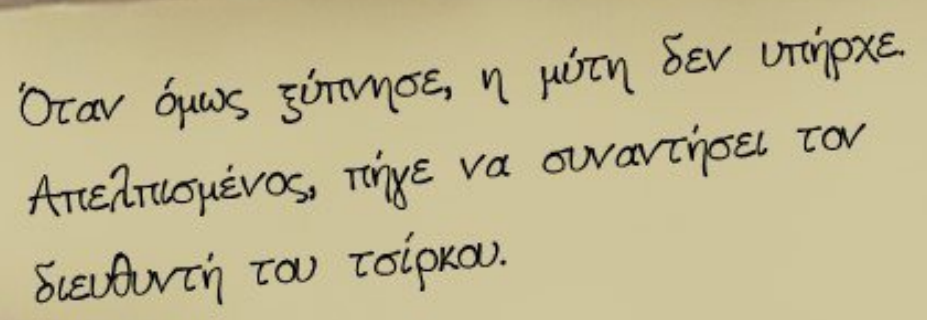 Όταν όμως ξύπνησε, η μύτη δεν υπήρχε.
Απελπισμένος, πήγε να συναντήσει τον
διευθυντή του τσίρκου.